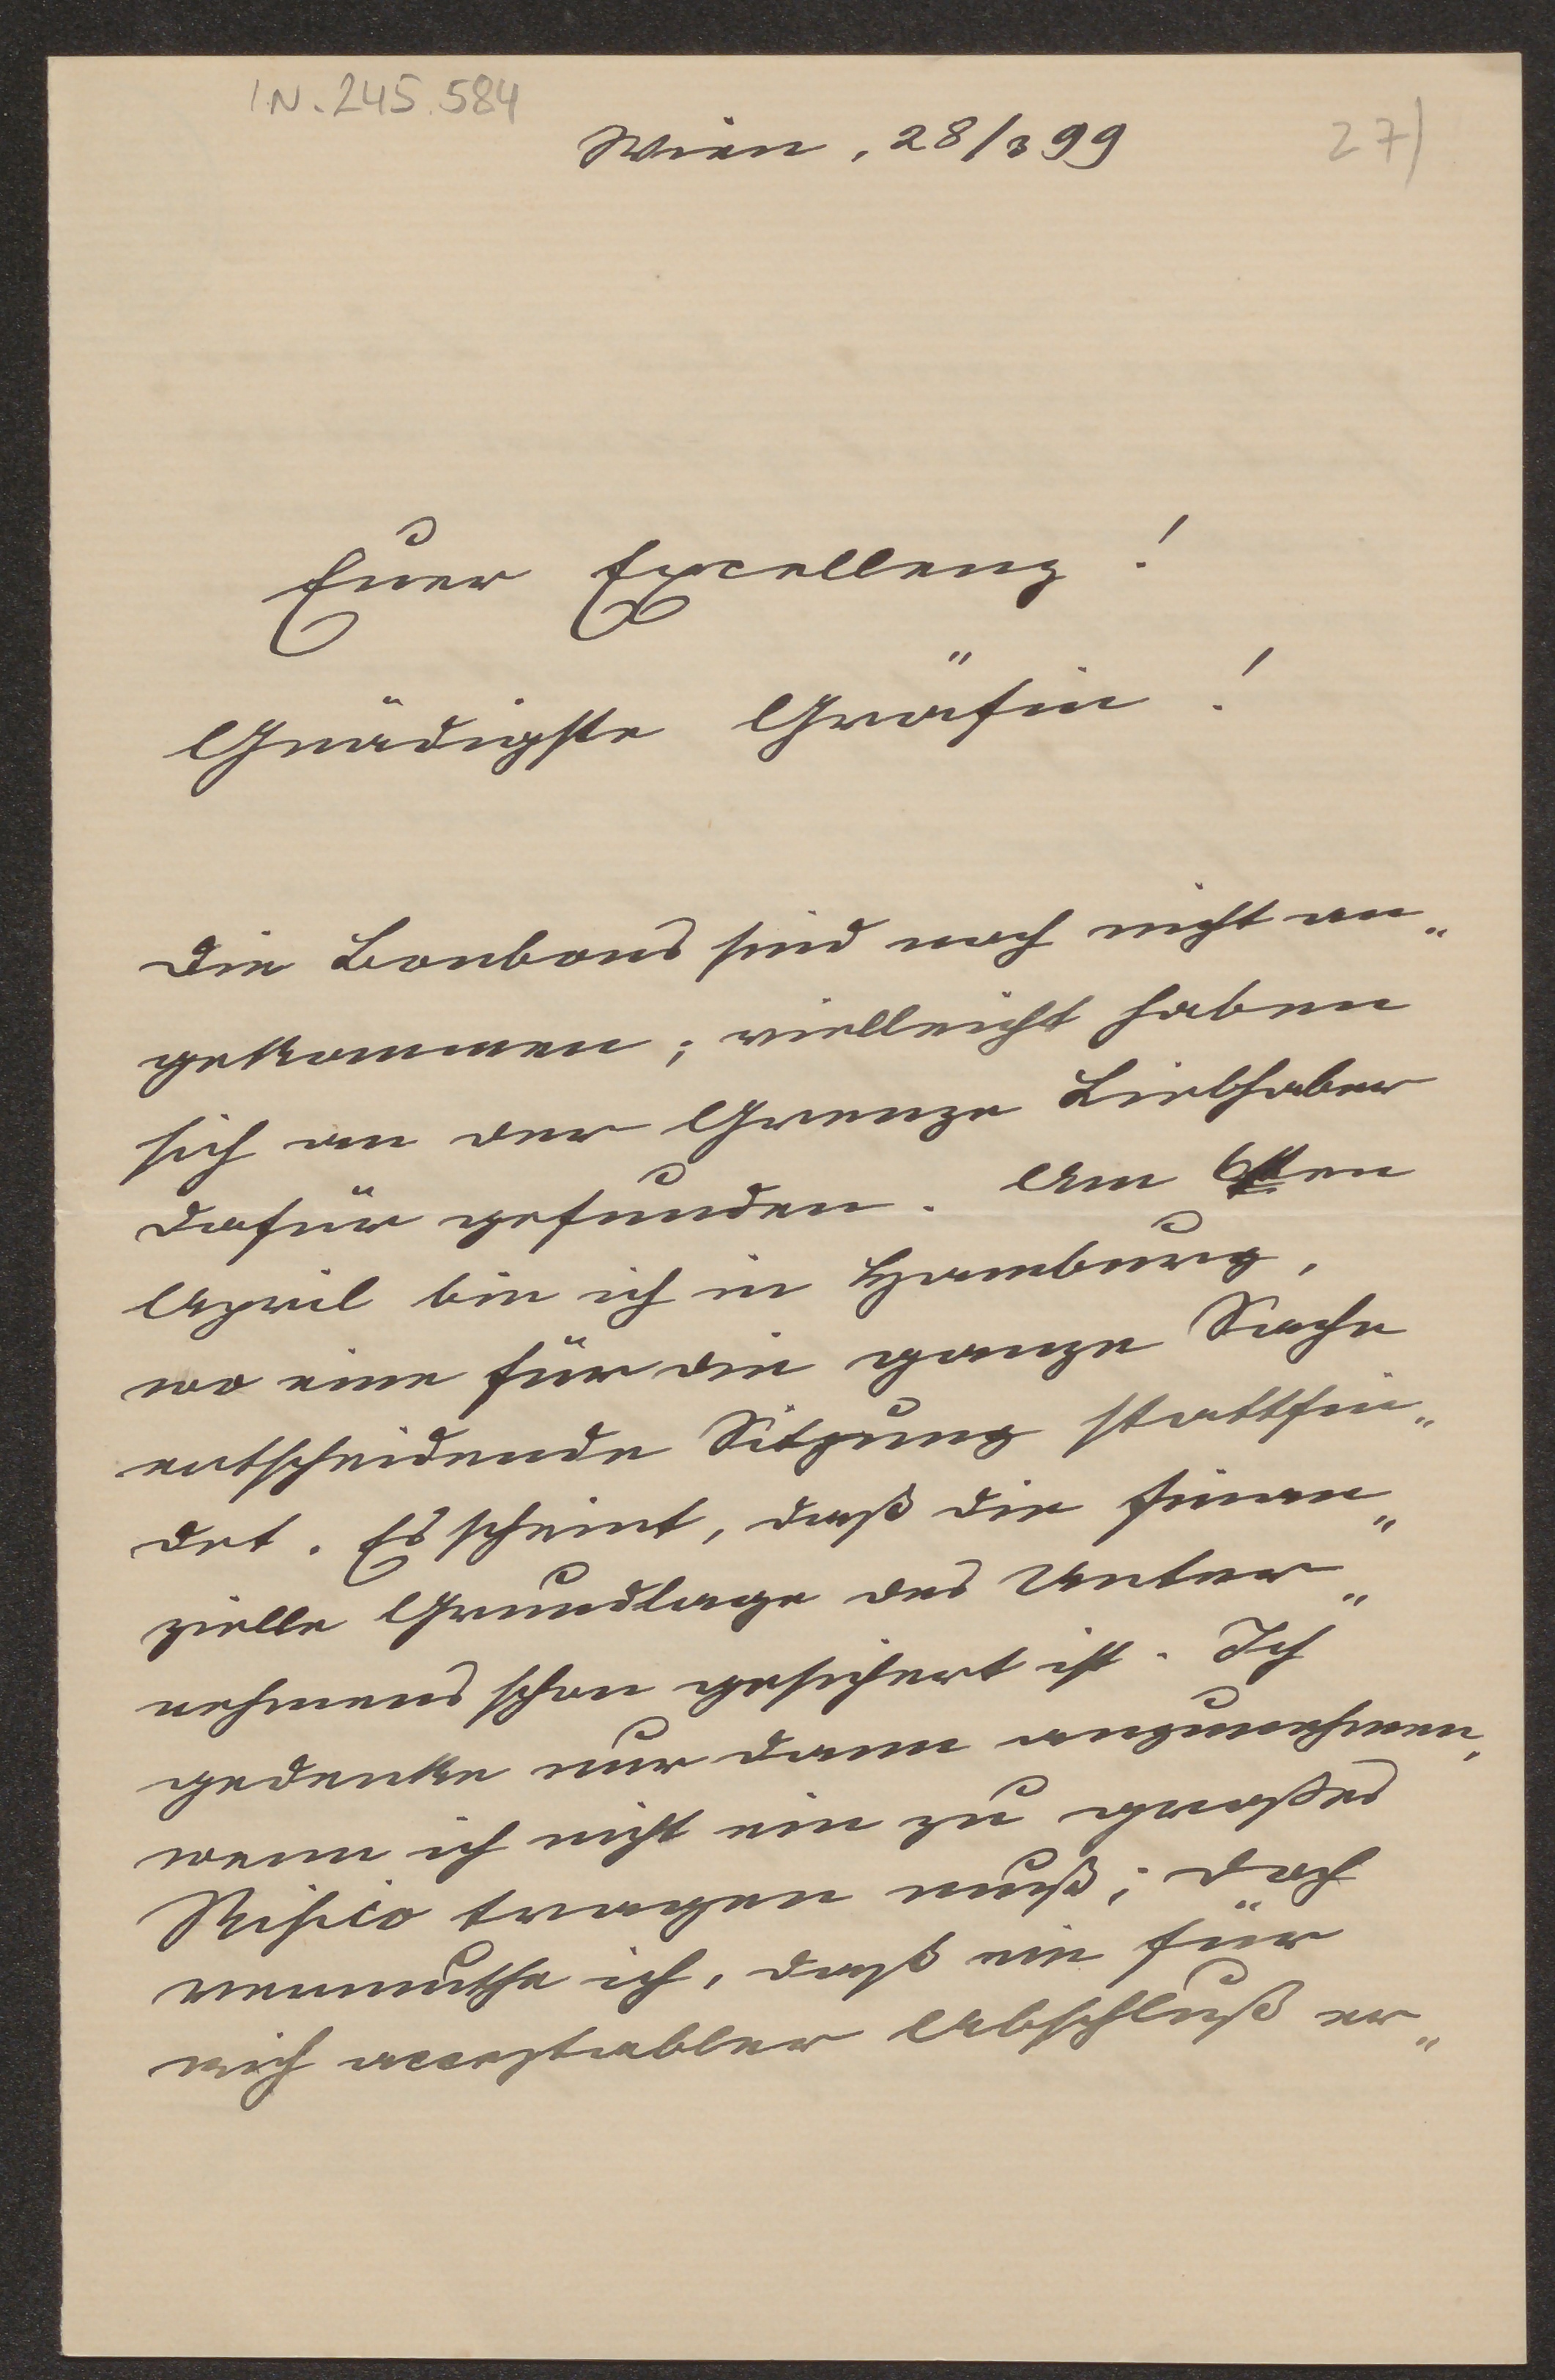 I.N. 245.584
Wien, 28/3 99
27)
Euer Excellenz!
Gnädigste Gräfin!
Die Bonbons sind noch nicht an„
gekommen; vielleicht haben
sich an der Grenze Liebhaber
dafür gefunden. Am 6ten
April bin ich in Hamburg,
wo eine für die ganze Sache
entscheidende Sitzung stattfin„
det. Es scheint, daß die finan„
zielle Grundlage des Unter„
nehmens schon gesichert ist. Ich
gedenke nur dann anzunehmen,
wenn ich nicht ein zu großes
Risico tragen muß; doch
vermuthe ich, daß ein für
mich acceptabler Abschluß er„